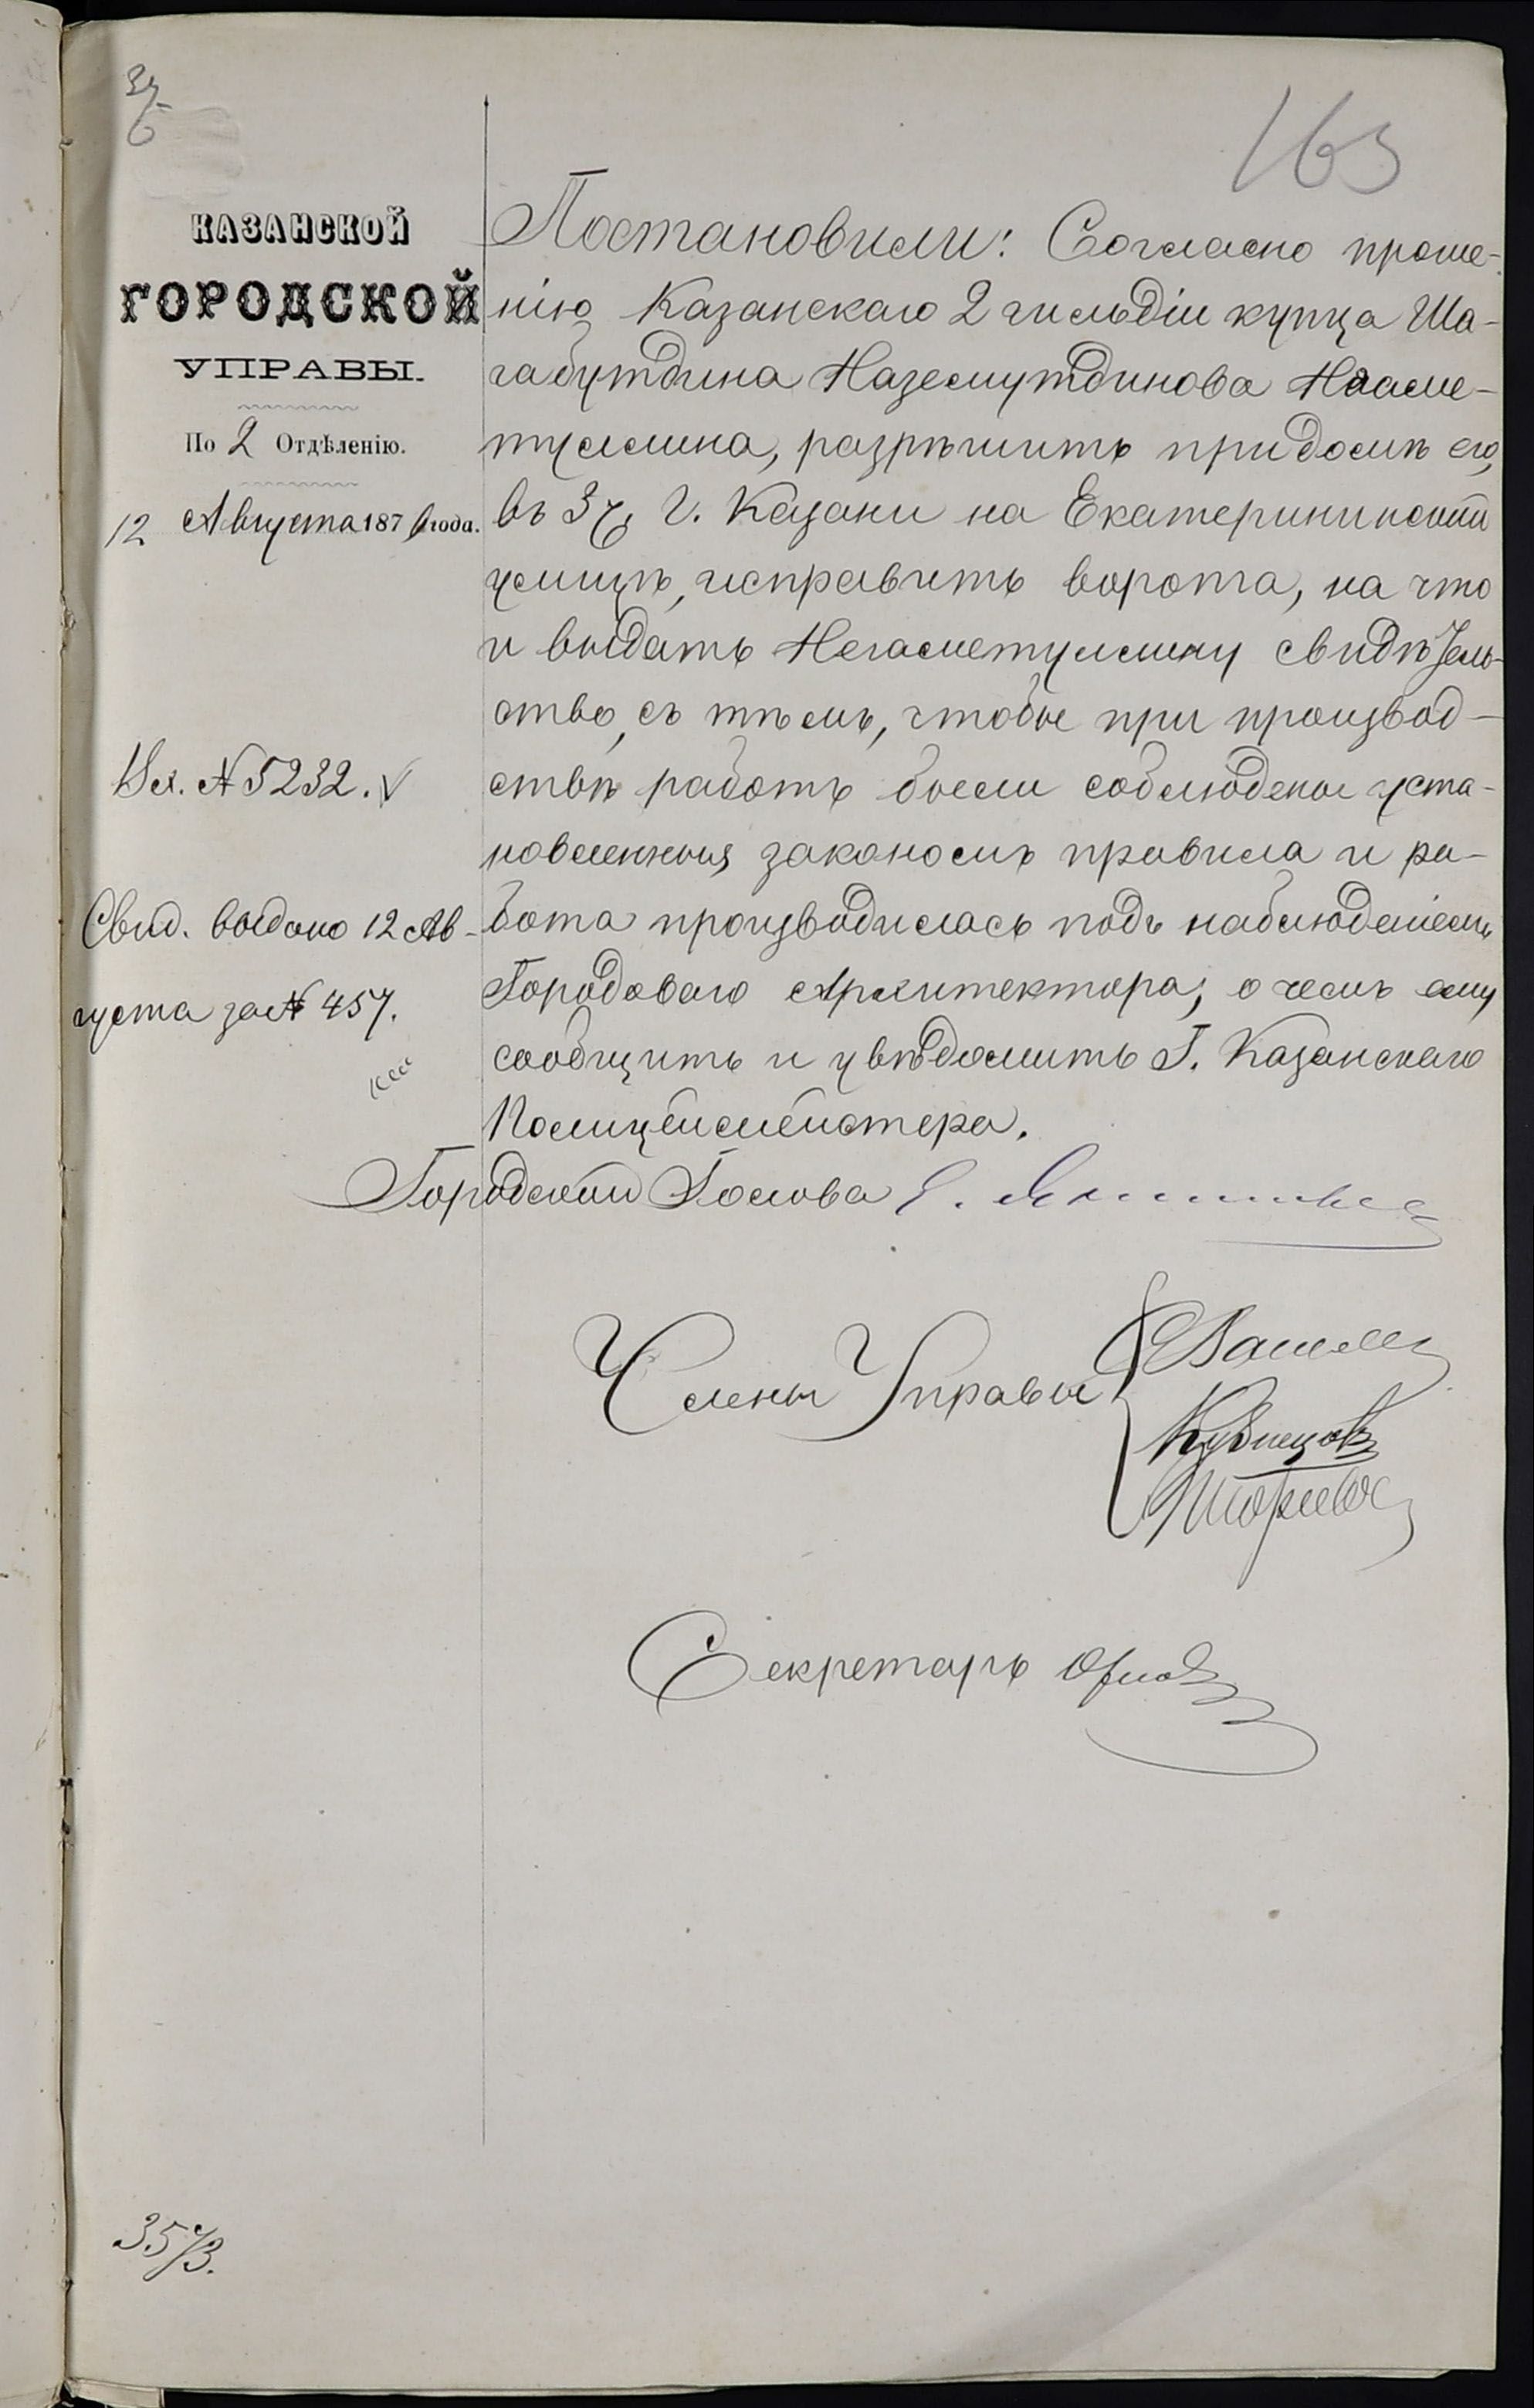 163
КАЗАНСКОЙ
ГОРОДСКОЙ
УПРАВЫ.
По 2 Отдѣленію.
12 Августа 1876 года.
Вх. № 5232.
Свид. выдано 12 Ав-
густа за № 457.
Постановили: Согласно проше-
нію Казанскаго 2 гильдіи купца Ша-
габутдина Наземутдинова
разрѣшить при домѣ его,
въ 3 ч. г. Казани на Екатерининской
улицѣ, исправить ворота, на что
и выдать Негаметуллину свидѣтель-
ство, съ тѣмъ, чтобы при производ-
ствѣ работъ были соблюдены уста-
новленныя закономъ правила и ра-
бота производилась подъ наблюденіемъ
Городоваго Архитектора, о чемъ ему
сообщить и увѣдомить Г. Казанскаго
Полицеймейстера.
Городской Голова
Члены Управы
Кузнецовъ
Секретарь
3573.